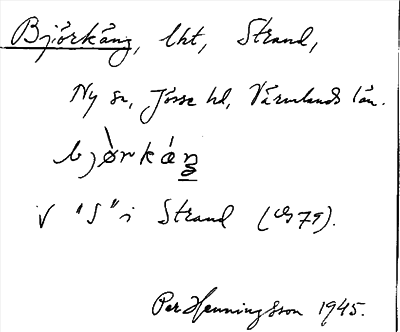 Björkäng, lht, Strand,
Ny sn, Jösse hd, Värmlands län.
V "S" i Strand
Per Henningsson 1945.